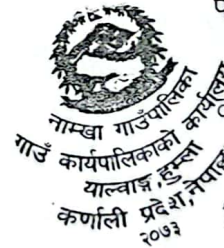 नाम्खा गाउँपालिका
गाउँ कार्यपालिकाको कार्यालय
याल्वाङ्ग, हुम्ला
कर्णाली प्रदेश, नेपाल
२०७३